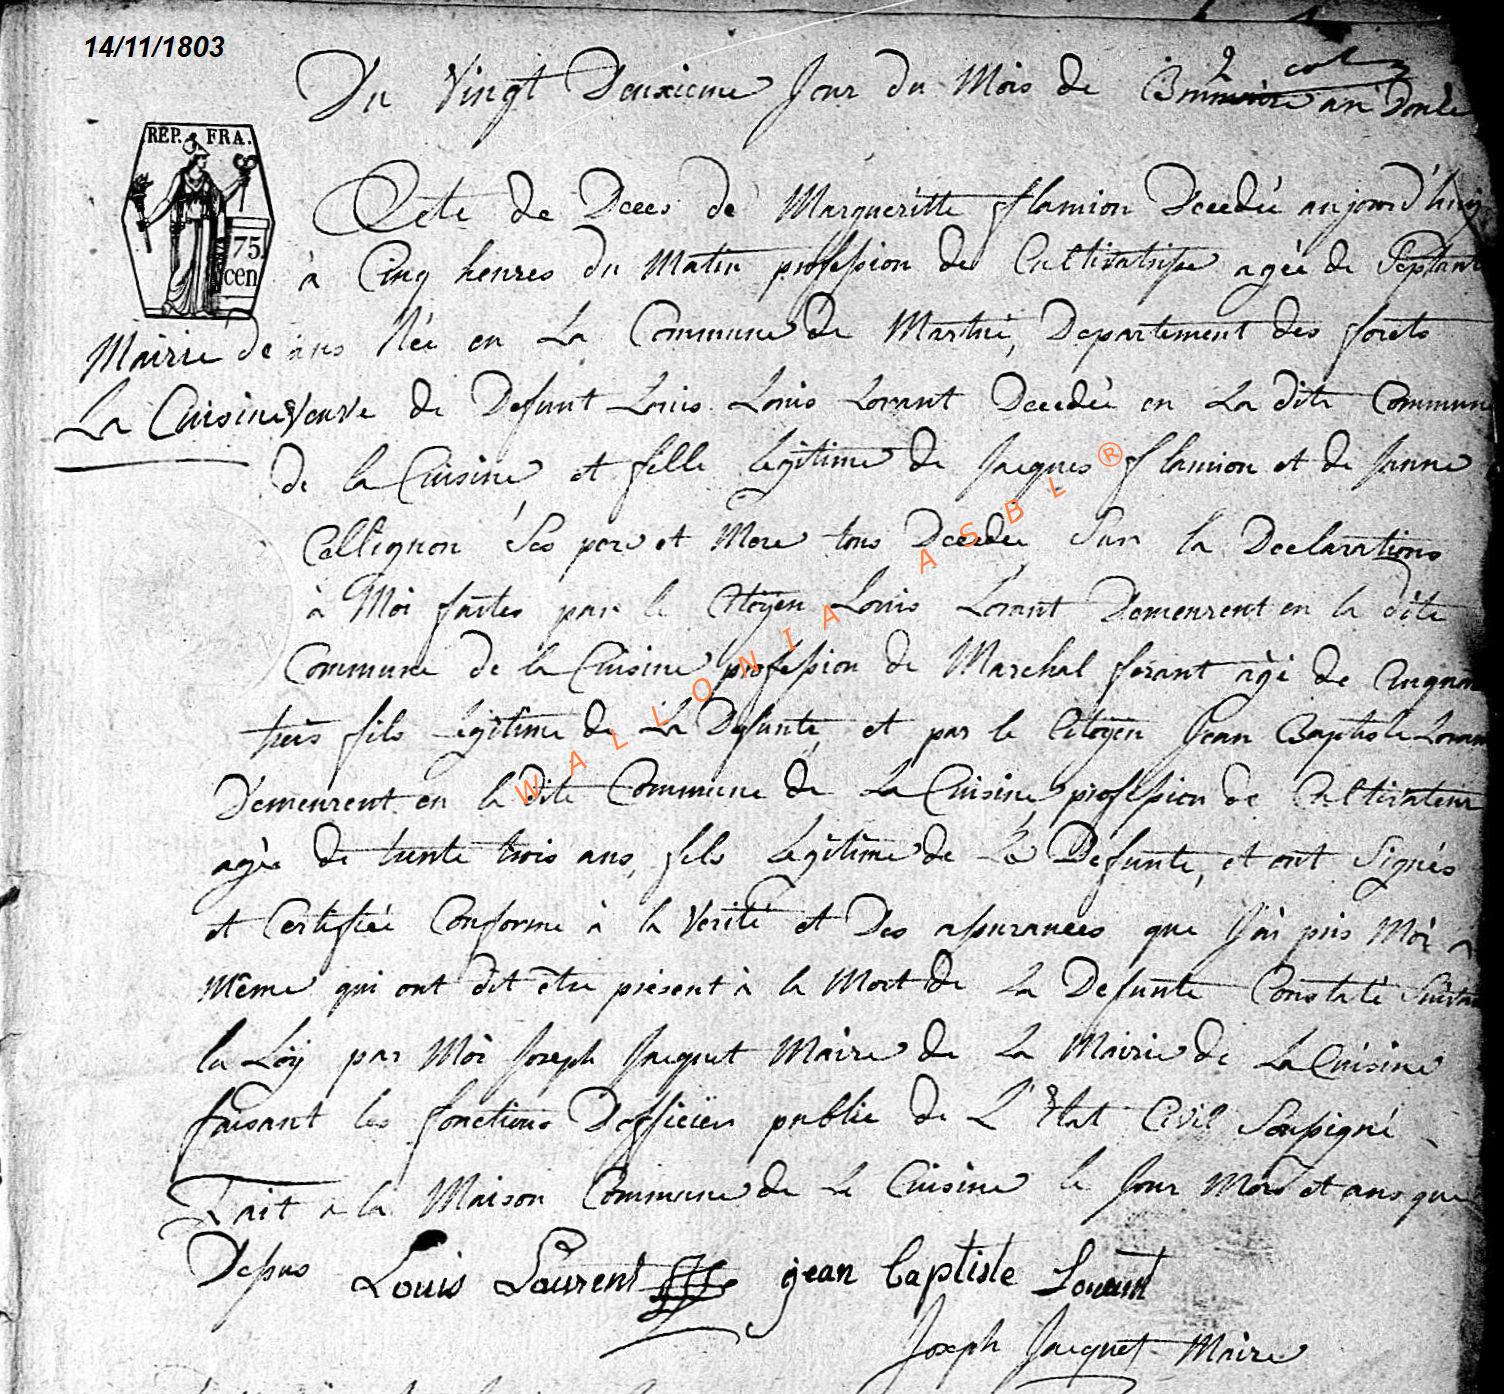 14/11/1803
2 col
Du Vingt Deuxieme Jour du Mois de Brumaire an Douze
REP. FRA.
75 cen
Acte de Deces de Margueritte flamion Decedée aujourd'huy
à Cinq heures du Matin profession de Cultivatrisse agée de Septante
Mairie de
La Cuisine
ans Née en La Commune de Martué, Departement des forets
Veuve de Defunt Louis Louis Lorant Decedée en La dite Commune
de la Cuisine et fille legitime de Jacques flamion et de Janne
Collignon Ses pere et Mere tous Decedée Sur la Declarations
à Moi faites par le Citoyen Louis Lorant Demeurent en la dite
Commune de la Cuisine profession de Marchal ferant agé de
trois fils Legitime de La Defunte, et par le Citoyen Jean Baptiste Lorant
Demeurent en la dite Commune de La Cuisine profession de Cultivateur
agée de trente trois ans, fils Legitime de La Defunte, et ont Signés
et Certifiée Conforme à la Verité et Des assurances que J'ai pris Moi a
Même qui ont dit être présent à la Mort de La Defunte Constaté Suivant
la Loÿ par Moi Joseph Jacquet Maire de La Mairie de La Cuisine
faisant les fonctions D'officier public de L'Etat Civil Soussigné
Fait a la Maison Commune de La Cuisine le Jour Mois et ans que
Dessus Louis Laurent jean baptiste Lorant
Joseph Jacquet Maire
WALLONIA ASBL ®